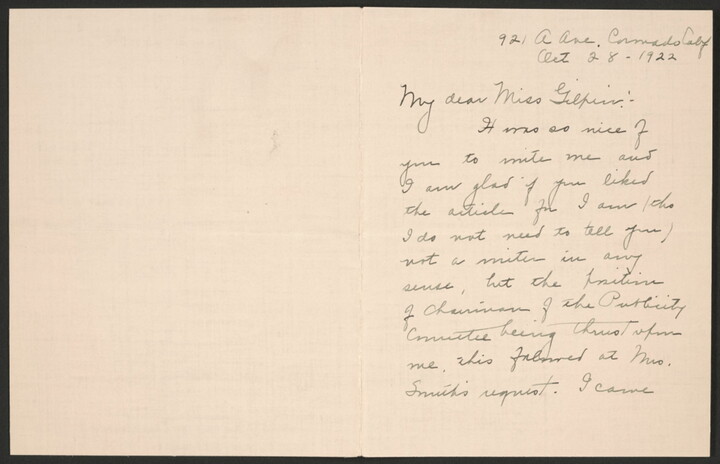 921 A Ave. Coronado Calif
Oct 28 - 1922
My dear Miss Gilpin:-
It was so nice of
you to write me and
I am glad if you liked
the article for I am (tho
I do not need to tell you)
not a writer in any
sense, but the position
of Chairman of the Publicity
Committee being thrust upon
me, this followed at Mrs.
Smith's request. I came